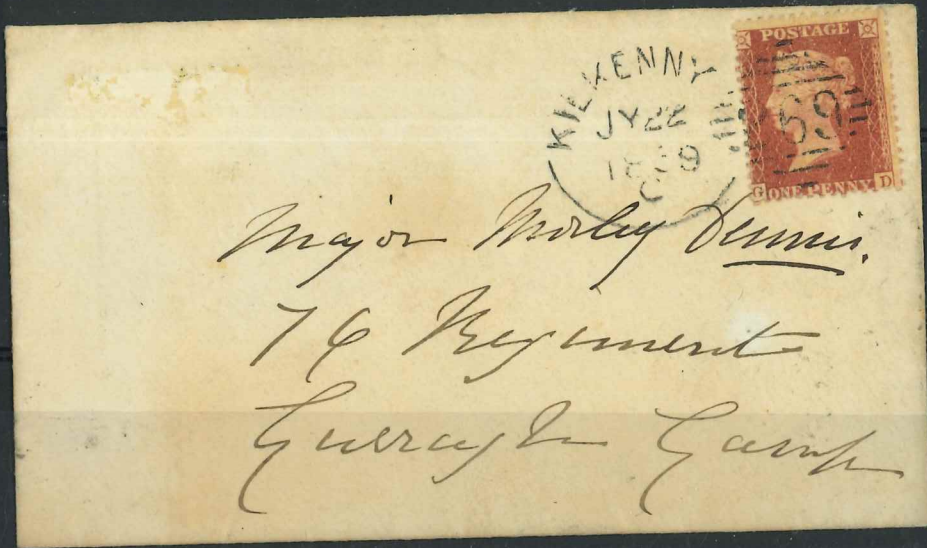 POSTAGE
KILKENNY
JY 22
1859
C
59
G ONE PENNY. D
Major Morley Dennis.
76 Regiment
Curragh Camp